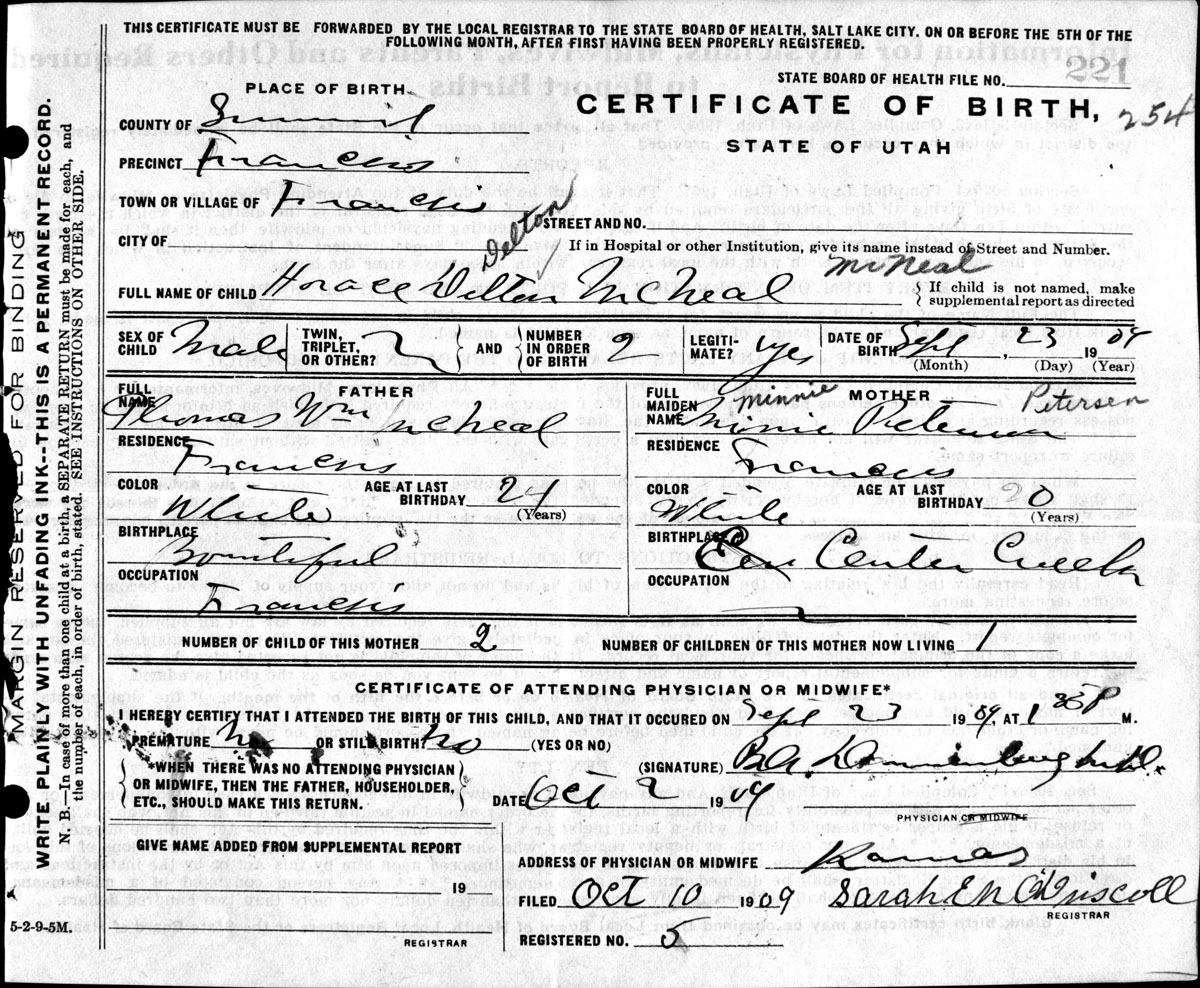 THIS CERTIFICATE MUST BE FORWARDED BY THE LOCAL REGISTRAR TO THE STATE BOARD OF HEALTH, SALT LAKE CITY. ON OR BEFORE THE 5TH OF THE
FOLLOWING MONTH, AFTER FIRST HAVING BEEN PROPERLY REGISTERED.
221
STATE BOARD OF HEALTH FILE NO.
PLACE OF BIRTH.
CERTIFICATE OF BIRTH, 254
STATE OF UTAH
COUNTY OF Summit
PRECINCT Francis
TOWN OR VILLAGE OF Francis
CITY OF
STREET AND NO.
If in Hospital or other Institution, give its name instead of Street and Number.
Delton McNeal
FULL NAME OF CHILD Horace Delton McNeal
If child is not named, make
supplemental report as directed
SEX OF CHILD Male TWIN, TRIPLET, OR OTHER? AND NUMBER IN ORDER OF BIRTH 2 LEGITIMATE? yes DATE OF BIRTH Sept, 23 1909
(Month) (Day) (Year)
FATHER
FULL NAME Thomas Wm McNeal
RESIDENCE
Francis
COLOR White AGE AT LAST BIRTHDAY 24 (Years)
BIRTHPLACE
Bountiful
OCCUPATION
Francis
MOTHER
Minnie Petersen
FULL MAIDEN NAME Minnie Petersen
RESIDENCE
Francis
COLOR White AGE AT LAST BIRTHDAY 20 (Years)
BIRTHPLACE
Center Creek
OCCUPATION
NUMBER OF CHILD OF THIS MOTHER 2 NUMBER OF CHILDREN OF THIS MOTHER NOW LIVING 1
CERTIFICATE OF ATTENDING PHYSICIAN OR MIDWIFE*
I HEREBY CERTIFY THAT I ATTENDED THE BIRTH OF THIS CHILD, AND THAT IT OCCURED ON Sept 23 1909, AT 1 30 P M.
PREMATURE No OR STILL BIRTH? No (YES OR NO)
*WHEN THERE WAS NO ATTENDING PHYSICIAN
OR MIDWIFE, THEN THE FATHER, HOUSEHOLDER,
ETC., SHOULD MAKE THIS RETURN.
(SIGNATURE)
DATE Oct 2 1909
PHYSICIAN OR MIDWIFE
GIVE NAME ADDED FROM SUPPLEMENTAL REPORT
19
REGISTRAR
ADDRESS OF PHYSICIAN OR MIDWIFE Kamas
FILED Oct 10 1909 Sarah E M O'Driscoll
REGISTRAR
REGISTERED NO. 5
5-2-9-5M.
MARGIN RESERVED FOR BINDING
WRITE PLAINLY WITH UNFADING INK--THIS IS A PERMANENT RECORD.
N. B.—In case of more than one child at a birth, a SEPARATE RETURN must be made for each, and
the number of each, in order of birth, stated. SEE INSTRUCTIONS ON OTHER SIDE.